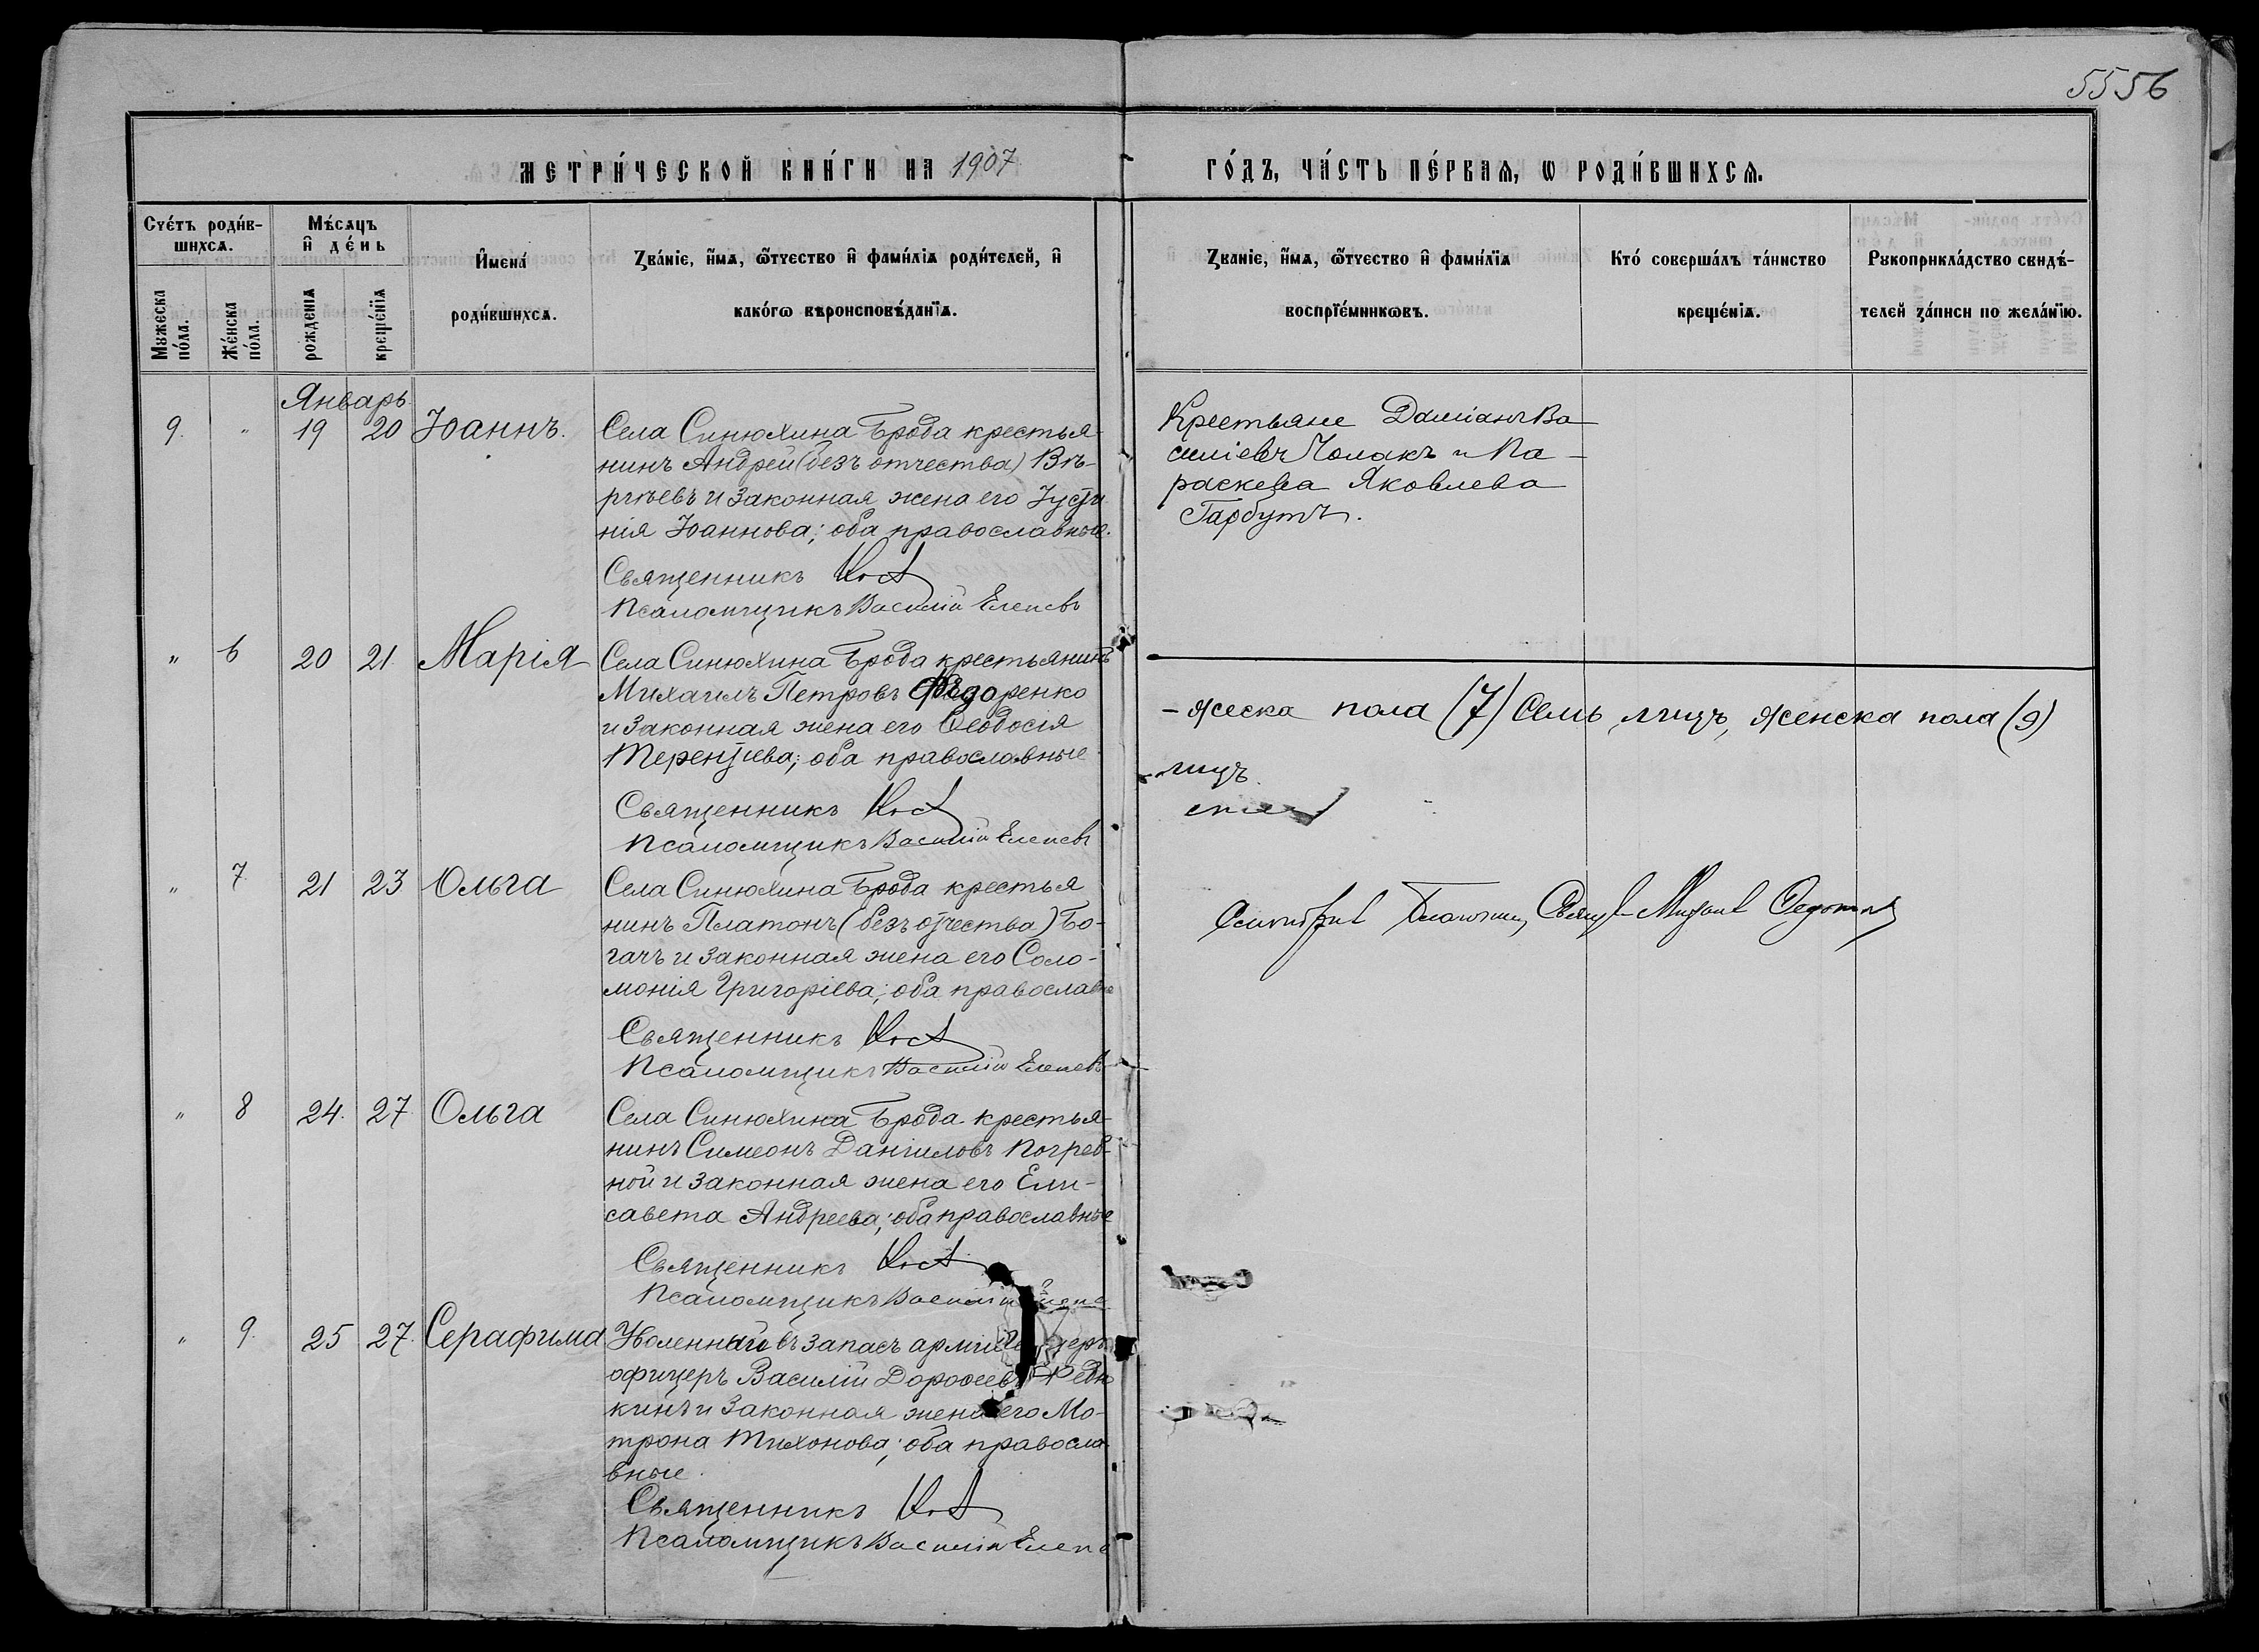 5556
МЕТРИ́ЧЕСКОЙ КНИ́ГИ НА 1907
ГО́ДЪ, ЧА́СТЬ ПЕ́РВАѦ, Ѡ РОДИ́ВШИХСѦ.
Сче́тъ роди́в-
шихсѧ.
Мѣ́сѧцъ
и҆ де́нь
Мꙋжеска
по́ла.
Же́нска
по́ла.
рожденїѧ
креще́нїѧ
И҆мена́
роди́вшихсѧ.
Зва́нїе, и҆́мѧ, ѻ҆́тчество и҆ фами́лїѧ роди́телей, и҆
како́гѡ вѣроисповѣ́данїѧ.
Зва́нїе, и҆́мѧ, ѻ҆́тчество и҆ фами́лїѧ
воспрїе́мникѡвъ.
Кто́ соверша́лъ та́инство
креще́нїѧ.
Рꙋкоприкла́дство свидѣ́-
телей за́писи по жела́нїю.
Январь
9. " 19 20 Іоаннъ.
Села Синюхина Брода крестья-
нинъ Андрей (безъ отчества)
и законная жена его Іусти
нія Іоаннова; оба православные.
Священникъ
Псаломщикъ Василій
" 6 20 21 Марія
Села Синюхина Брода крестьянинъ
Михаилъ Петровъ Федоренко
и законная жена его Ѳеодосія
Терентіева; оба православные
Священникъ
Псаломщикъ Василій
" 7 21 23 Ольга
Села Синюхина Брода крестья
нинъ Платонъ (безъ отчества) Бо-
гачъ и законная жена его Соло-
монія Григоріева; оба православные
Священникъ
Псаломщикъ Василій
" 8 24. 27 Ольга
Села Синюхина Брода крестья-
нинъ Симеонъ Даніиловъ Погреб-
ной и законная жена его Ели-
савета Андреева; оба православные
Священникъ
Псаломщикъ Василій
" 9. 25 27. Серафима
Уволенный въ запасъ арміи
офицеръ Василій Дороѳеевъ Редь
кинъ и законная жена его Мо-
трона Тихонова; оба правосла
вные.
Священникъ
Псаломщикъ Василій
Крестьяне Даміанъ Ва
силіевъ Чомакъ и Па-
раскева Яковлева
Гарбутъ.
-жеска пола (7) Семь лицъ, женска пола (9)
лицъ
Михаил